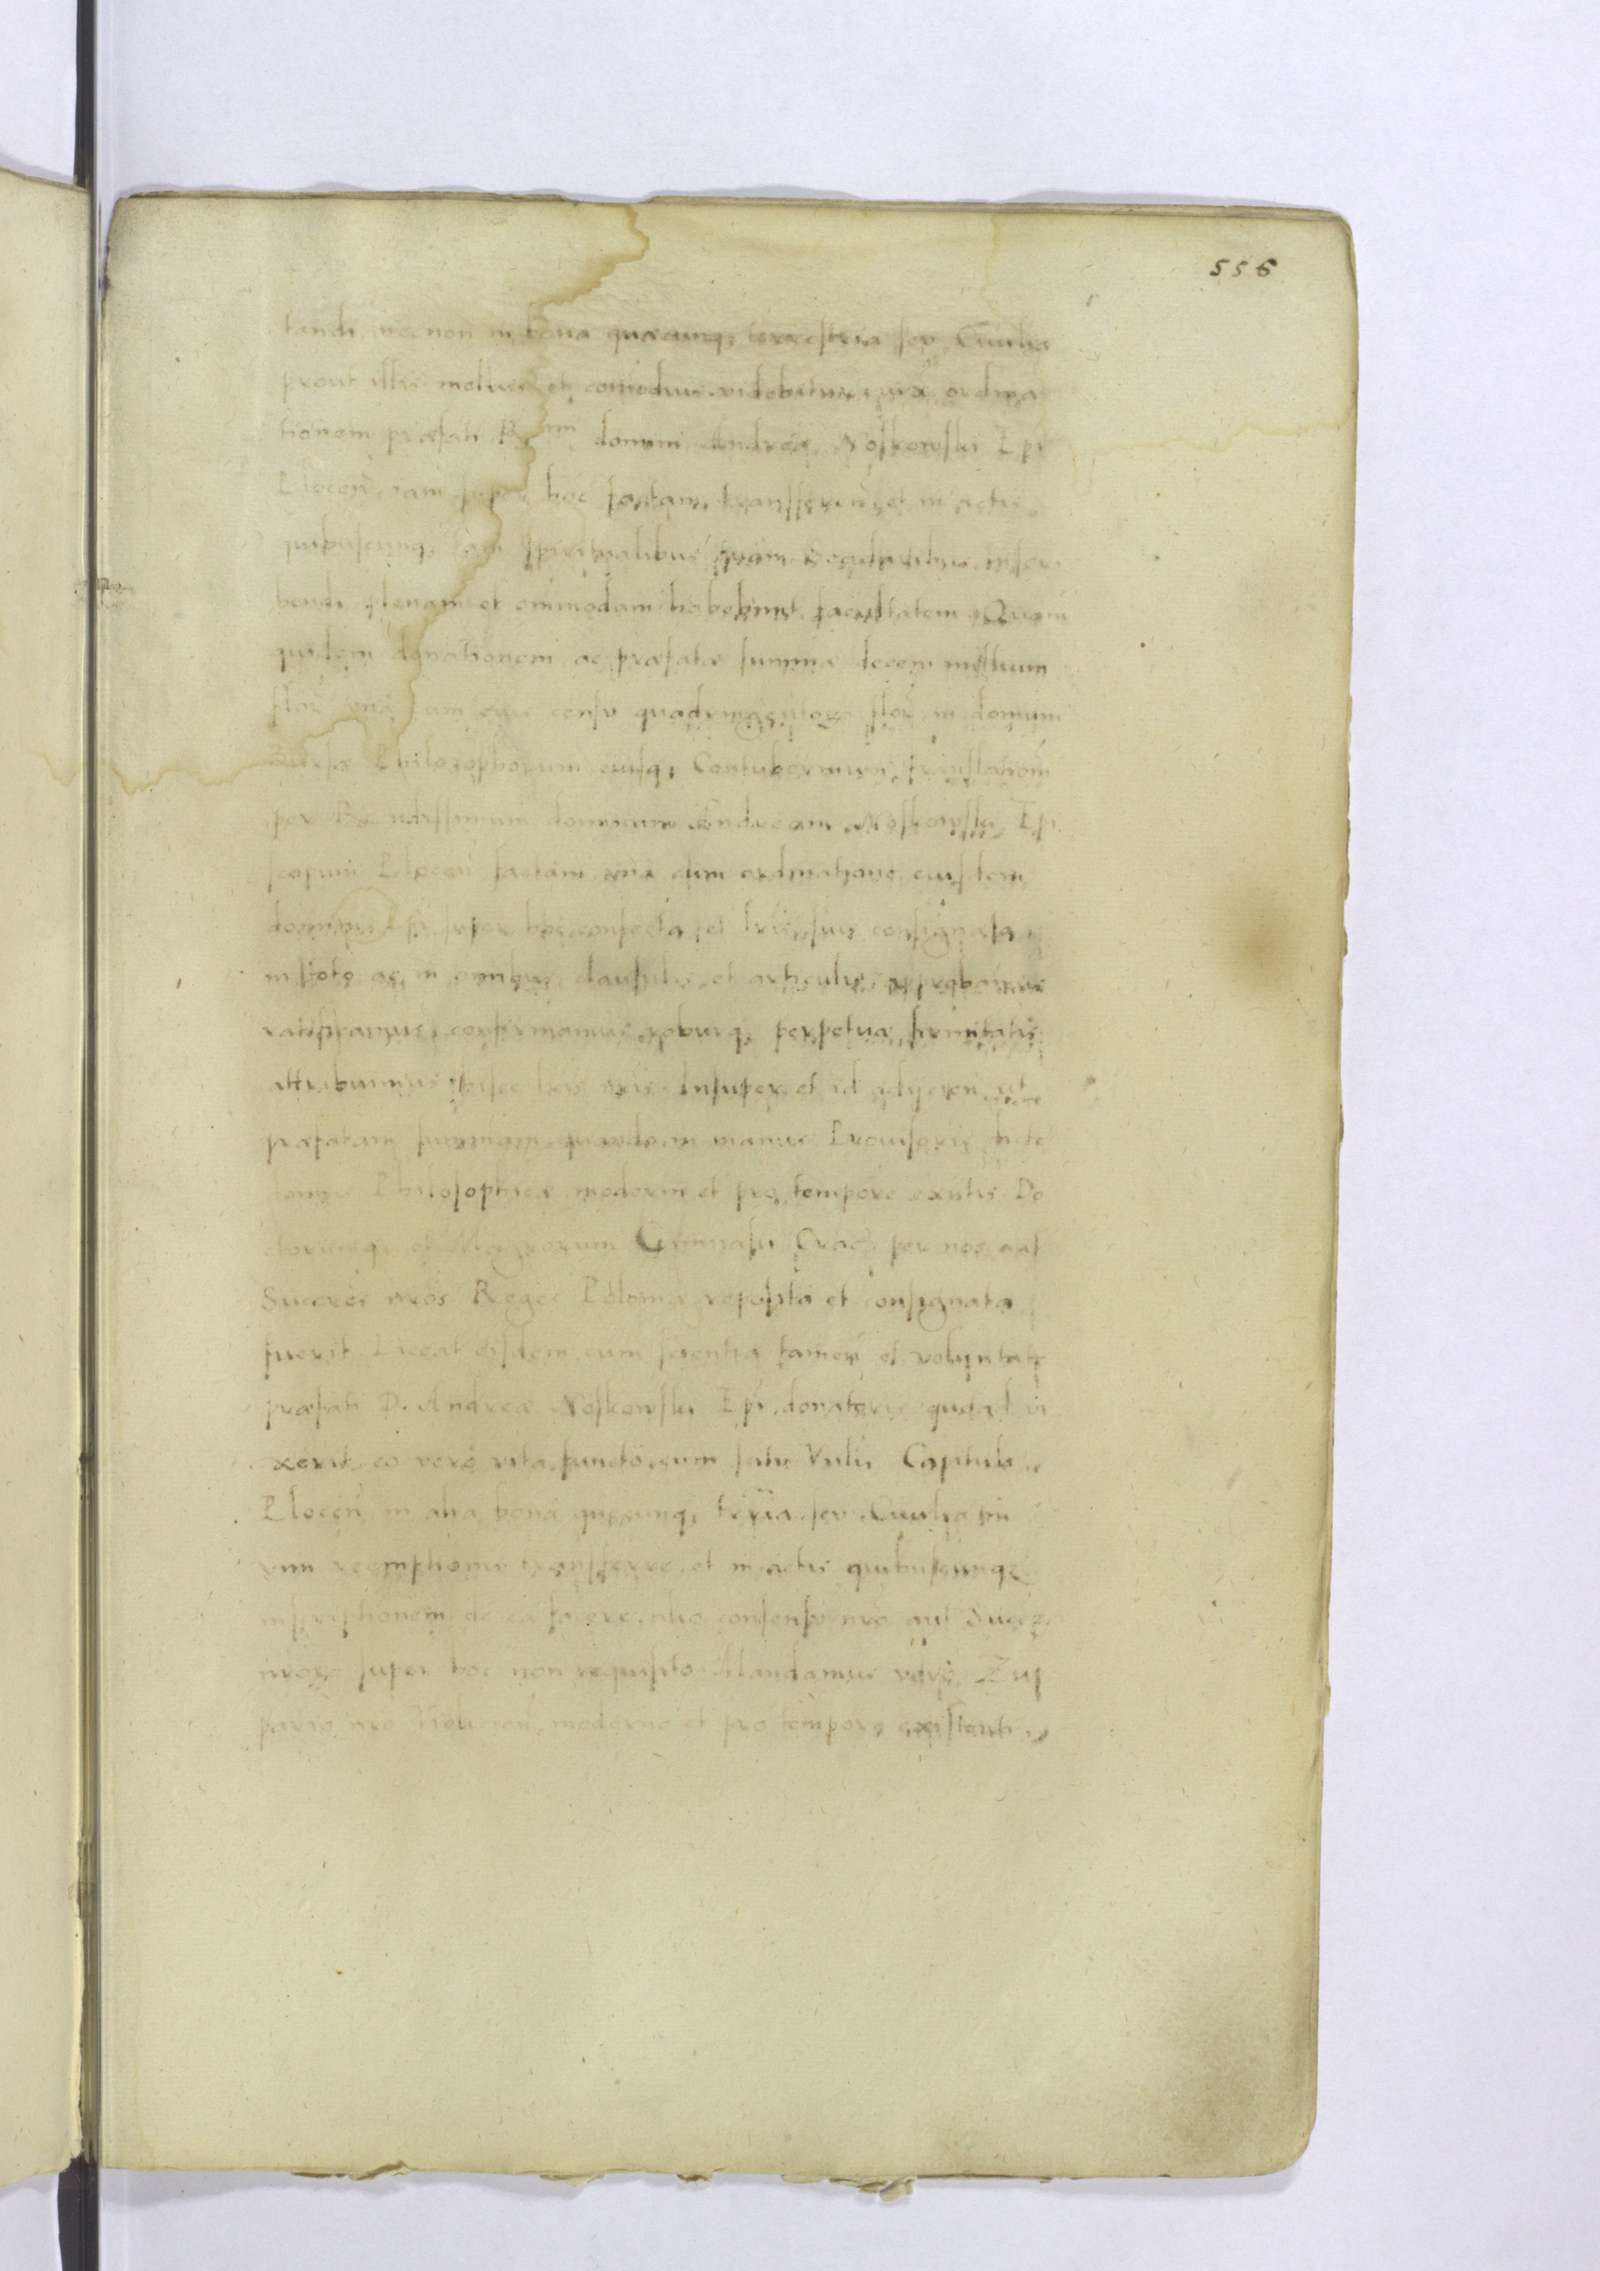 556
tandi nec non in bona quæcunq; terrestria seu Civilia
prout illis melius et comodius videbitur iuxa ordina
tionem præfati Rmi domini Andreæ Noskowski Epi
Plocen̄ iam super hoc factam, transferen̄ et in actis
quibuscunq; tam spiritualibus quam secularibus inscri
bendi plenam et omnimodam habebunt facultatem Quam
quidem donationem ac præfatæ summæ decem millium
flor una cum eius censu quadringentorum flor in domum
Philosophorum eiusq; Contubernium translationem
per Rendissimum dominum Andream Noskowski Epi
scopum Plocen̄ factam una cum ordinatione eiusdem
domini Epi super hoc confecta et lris suis consignata
in toto ac in omnibus clausulis et articulis approbamus
ratificamus confirmamus roburq; perpetuæ firmitatis
attribuimus hisce lris nris Insuper et id adijcien̄ ut
præfatam summam quando in manus Provisoris dictæ
domus Philosophicæ moderni et pro tempore exntis Do
ctorumq; et Magrorum Gimnasii Crac per nos aut
Succres nros Reges Poloniæ reposita et consignata
fuerit Liceat eisdem cum scientia tamen et voluntate
præfati D. Andreæ Noskowski Epi donatoris quoad vi
xerit eo vero vita functo cum scitu Vnlis Capituli
Plocen̄ in alia bona quæcunq; trria seu Civilia
vim reemptionis transferre et in actis quibuscunq;
inscriptionem de ea facere alio consensu nro aut Succr
nror super hoc non requisito Mandamus vero Zup
pario nro moderno et pro tempore existenti